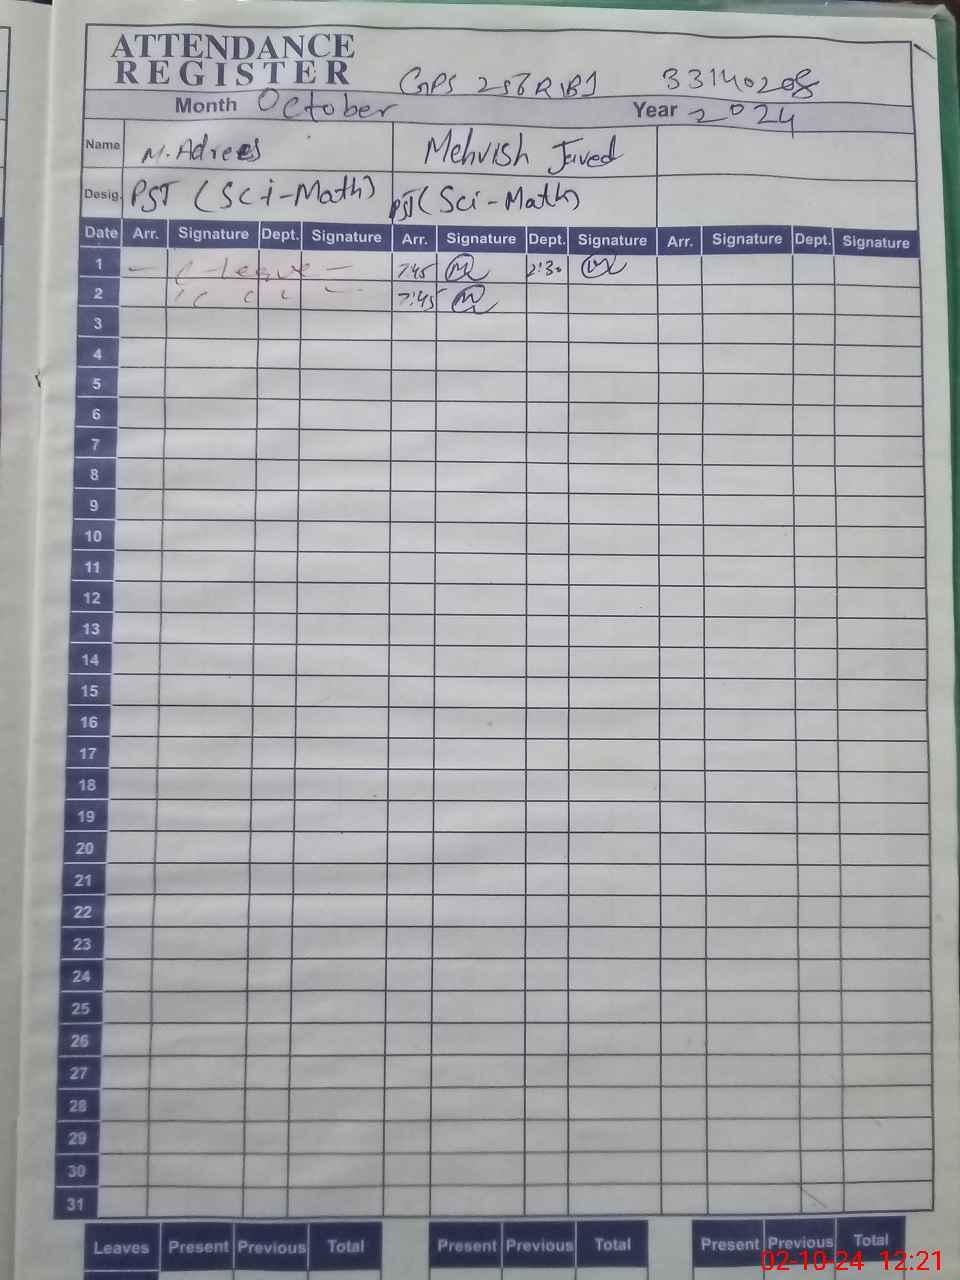 ATTENDANCE
REGISTER GPS 258 R/B1 33140208
Month October Year 2024
Name M. Adrees Mehvish Javed
Desig. PST (Sci-Math) PST (Sci-Math)
Date Arr. Signature Dept. Signature Arr. Signature Dept. Signature Arr. Signature Dept. Signature
1 — C-Leave — 7:45 2:30
2 7:45
3
4
5
6
7
8
9
10
11
12
13
14
15
16
17
18
19
20
21
22
23
24
25
26
27
28
29
30
31
Leaves Present Previous Total Present Previous Total Present Previous Total
02-10-24 12:21